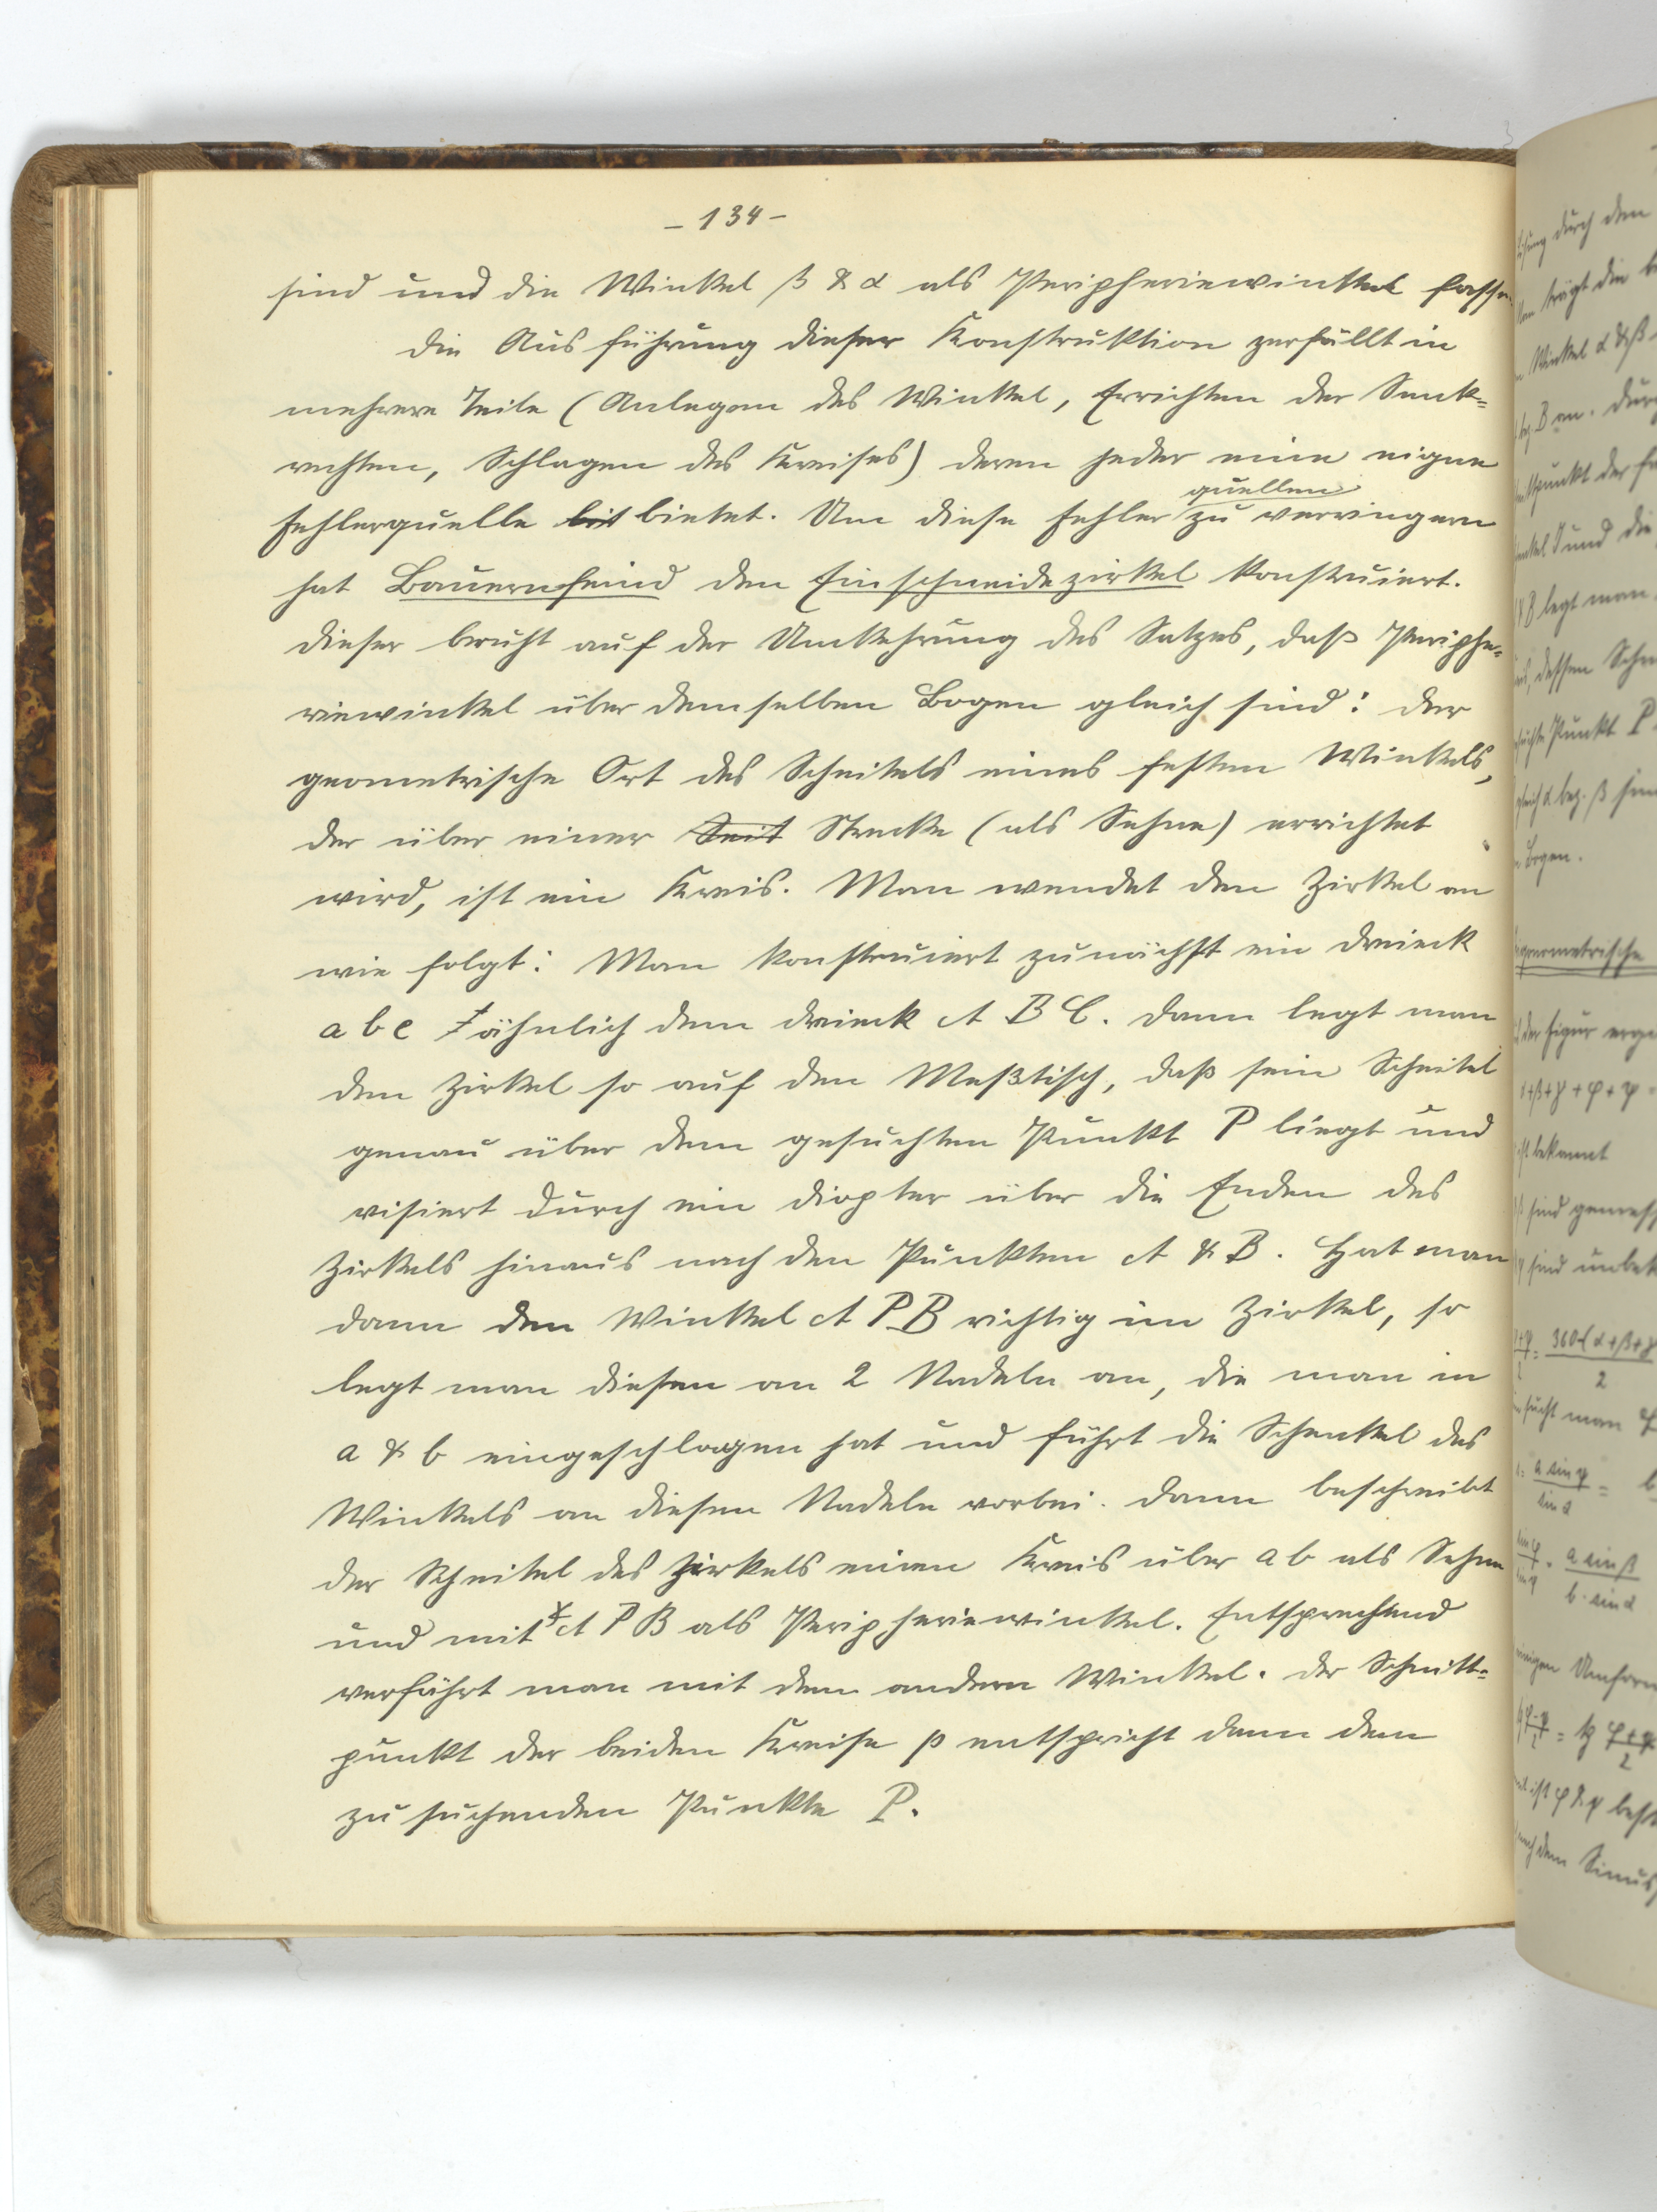 – 134 –
sind und die Winkel β & α als Peripheriewinkel fassen.
Die Ausführung dieser Konstruktion zerfällt in
mehrere Teile (Anlegen des Winkel, Errichten der Senk=
rechten, Schlagen des Kreises) deren jeder eine eigne
quellen
Fehlerquelle bit bietet. Um diese Fehler zu verringern
hat Bauernfeind den Einschneidezirkel konstruiert.
Dieser beruht auf der Umkehrung des Satzes, daß Periphe=
riewinkel über demselben Bogen gleich sind: Der
geometrische Ort des Scheitels eines festen Winkels,
der über einer Seit Strecke (als Sehne) errichtet
wird, ist ein Kreis. Man wendet den Zirkel an
wie folgt: Man konstruiert zunächst ein Dreieck
a b c ähnlich dem Dreieck A B C. Dann legt man
den Zirkel so auf den Meßtisch, daß sein Scheitel
genau über dem gesuchten Punkt P liegt und
visiert durch ein Diopter über die Enden des
Zirkels hinaus nach den Punkten A & B. Hat man
dann den Winkel A P B richtig im Zirkel, so
legt man diesen an 2 Nadeln an, die man in
a & b eingeschlagen hat und führt die Schenkel des
Winkels an diesen Nadeln vorbei. Dann beschreibt
der Scheitel des Zirkels einen Kreis über a b als Sehne
und mit ∢ A P B als Peripheriewinkel. Entsprechend
verfährt man mit dem andern Winkel. Der Schnitt=
punkt der beiden Kreise p entspricht dann dem
zu suchenden Punkte P.
durch den
trägt die
Winkel α & β
B an. Durch
der
und die
legt man
, dessen
Punkt P
α bez. β
Bogen.
der Figur
+β+γ+φ+ψ
bekannt
sind
sind
360-(α+β+γ
2
sucht man
a sin φ
sin α
=
a sin β
b · sin α
φ+ψ
2
dem Sinus